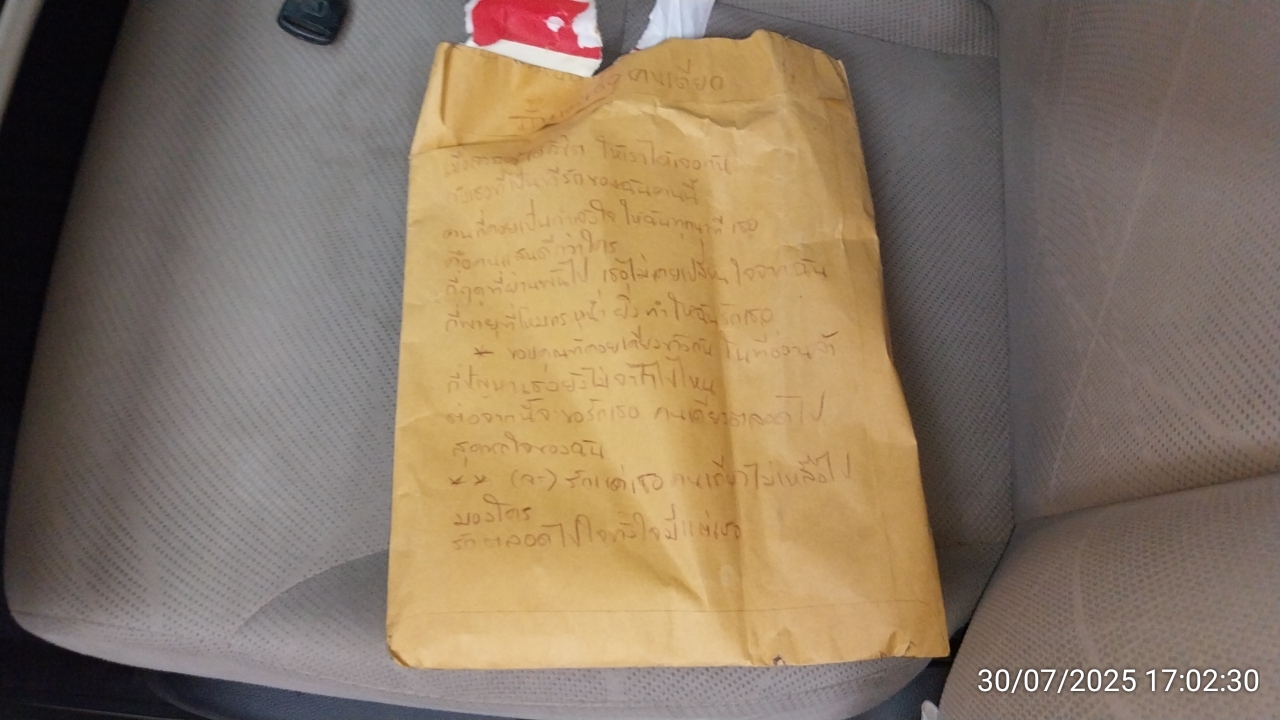 คนเดียว
ให้เราได้เจอกัน
กับเธอที่เป็นที่รักของฉันคนนี้
คนที่คอยเป็นกำลังใจ ให้ฉันทุกนาที เธอ
คือคนแสนดีกว่าใคร
กี่ฤดูที่ผ่านพ้นไป เธอไม่เคยเปลี่ยนใจจากฉัน
กี่พายุที่โหมกระหน่ำ ยิ่งทำให้ฉันรักเธอ
* ขอบคุณที่คอยเคียงข้างกัน ในที่อ่อนล้า
กี่ปัญหาเธอยังไม่จากไปไหน
ต่อจากนี้จะขอรักเธอ คนเดียวตลอดไป
สุดหัวใจของฉัน
** (จะ) รักแต่เธอคนเดียวไม่เหลือไป
มองใคร
รักตลอดไปใจทั้งใจมีแต่เธอ
30/07/2025 17:02:30